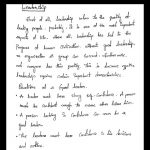 Leadership
First of all, Leadership refers to the quality of
leading people positively. It is one of the most important
aspects of life. Above all Leadership has led to the
Progress of human civilization. Without good Leadership,
no organization or group can succeed. Furthermore, not
everyone has this quality. This is because effective
Leadership requires certain important characteristics.
Qualities of a Good Leader
A leader must have strong self-confidence. A person
must be confident enough to ensure other follow him.
A person lacking in Confidence can never be a
good leader.
The leader must have Confidence in his decisions
and